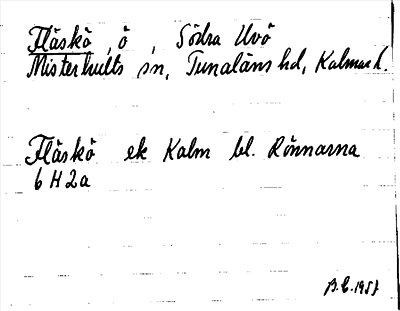 Fläskö, ö, Södra Uvö
Misterhults sn, Tunaläns hd, Kalmar l.
Fläskö ek Kalm bl. Rönnarna
6 H 2a
B.E. 1957